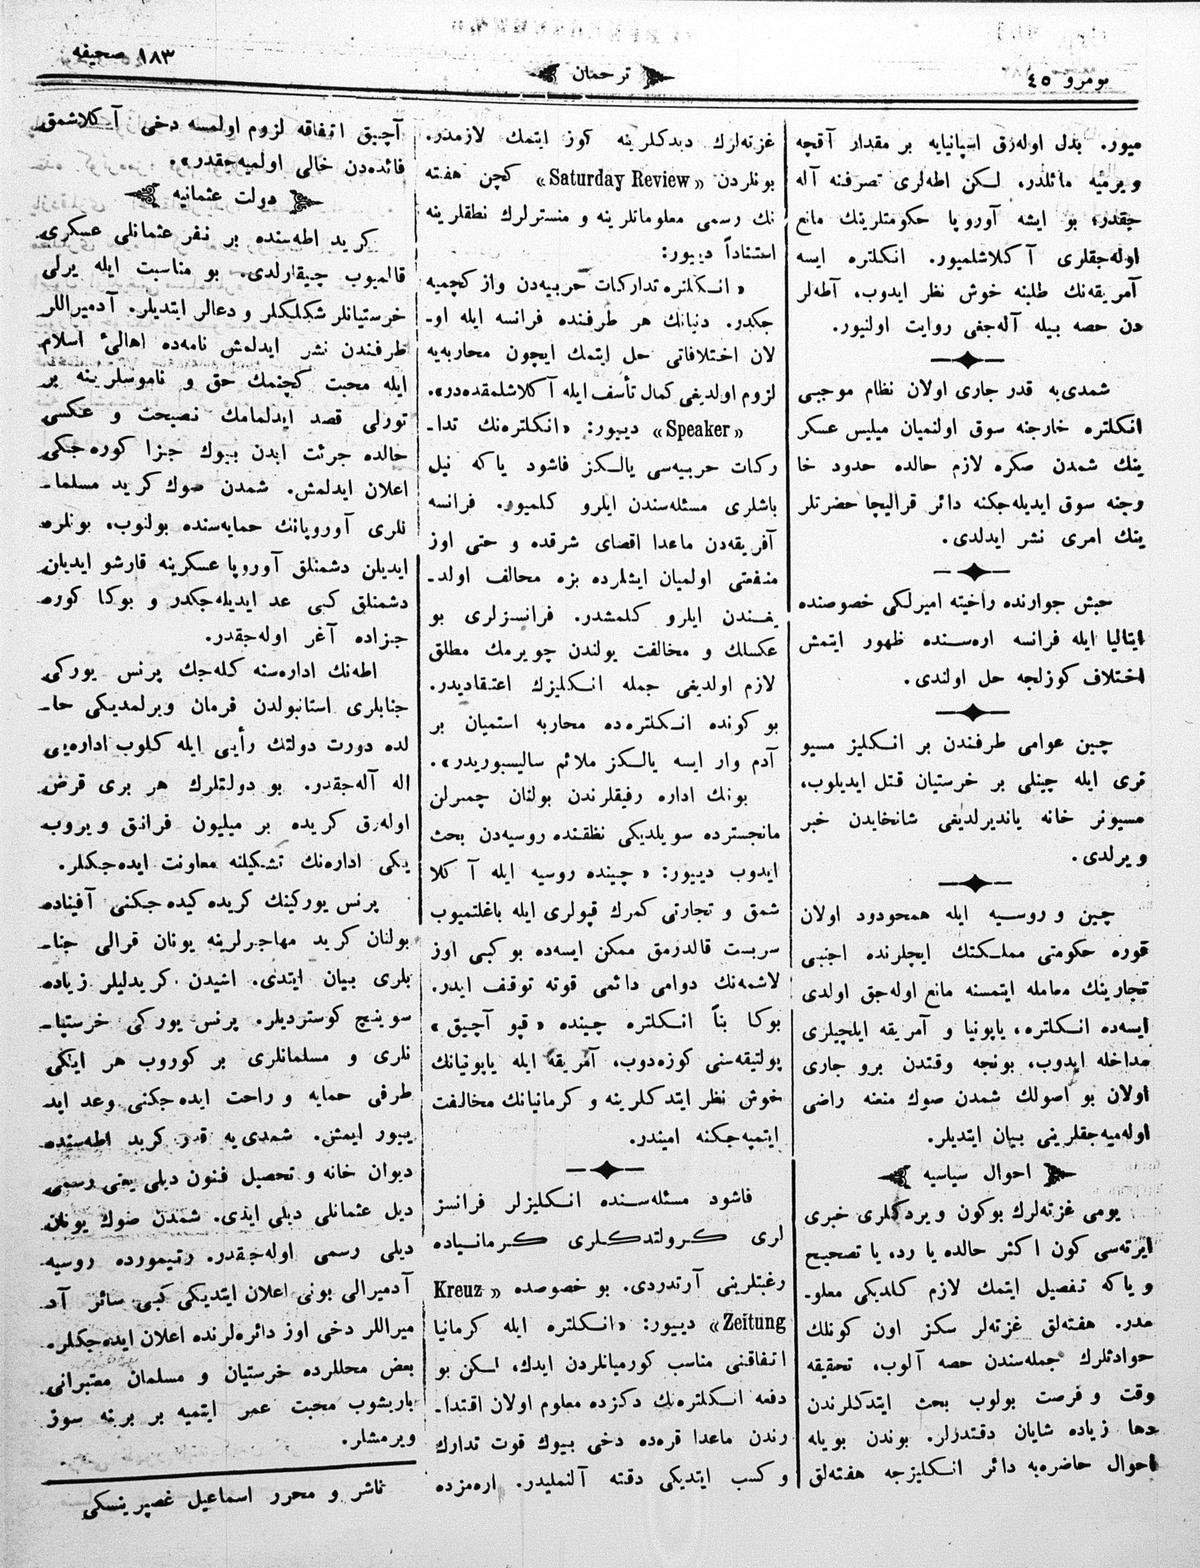 نومرو ٤٥
ترجمان
١٨٣ صحیفه
میور. بدل اوله‌رق اسپانیایه بر مقدار آقچه
ویرمیه مائلدر. لكن اطه‌لری تصرفنه آله
جقدر؛ بو ایشه آوروپا حكومتلرینك مانع
اوله‌جقلری آكلاشلمیور. انكلتره ایسه
آمریقه‌نك طلبنه خوش نظر ایدوب، آطه‌لر
دن حصه بیله آله‌جغی روایت اولنیور.
شمدی‌یه قدر جاری اولان نظام موجبی
انكلتره خارجنه سوق اولنمیان میلیس عسكر
ینك شمدن صكره لازم حالده حدود خا
رجنه سوق ایدیله‌جكنه دائر قرالیچا حضرتلر
ینك امری نشر ایدلدی.
حبش جوارنده راخیته امیرلكی خصوصنده
ایتالیا ایله فرانسه اره‌سنده ظهور ایتمش
اختلاف كوزلجه حل اولندی.
چین عوامی طرفندن بر انكلیز مسیو
نری ایله چینلی بر خرستیان قتل ایدیلوب،
مسیونر خانه یاندیرلدیغی شانخایدن خبر
ویرلدی.
چین و روسیه ایله همحودود اولان
قوره حكومتی مملكتنك ایچلرنده اجنبی
تجارینك معامله ایتمسنه مانع اوله‌جق اولدی
ایسه‌ده انكلتره، یاپونیا و آمریقه ایلچیلری
مداخله ایدوب، بونجه وقتدن برو جاری
اولان بو اصولك شمدن صوك منعنه راضی
اوله‌میه‌جقلرینی بیان ایتدیلر.
احوال سیاسیه
یومی غزته‌لرك بوكون ویردكلری خبری
ایرته‌سی كون اكثر حالده یا رد، یا تصحیح
و یاكه تفصیل ایتمك لازم كلدیكی معلو-
مدر. هفته‌لق غزته‌لر سكز اون كونلك
حوادثلرك جمله‌سندن حصه آلوب، تحقیقه
وقت و فرصت بولوب بحث ایتدكلرندن
دها زیاده شایان دقتدرلر. بوندن بویله
احوال حاضره‌یه دائر انكلیزجه هفته‌لق
غزته‌لرك دیدكلرینه كوز ایتمك لازمدر.
بونلردن «Saturday Review» كچن هفته
نك رسمی معلوماتلرینه و منسترلرك نطقلرینه
استناداً دییور:
«انكلتره تداركات حربیه‌دن واز كچمیه
جكدر. دنیانك هر طرفنده فرانسه ایله او-
لان اختلافاتی حل ایتمك ایچون محاربه‌یه
لزوم اولدیغی كمال تأسف ایله آكلاشلمقده‌در».
«Speaker» دییور: «انكلتره‌نك تدا-
ركات حربیه‌سی یالكز فاشود یاكه نیل
باشلری مسئله‌سندن ایلرو كلمیور. فرانسه
آفریقه‌دن ماعدا اقصای شرقده و حتی اوز
منفعتی اولمیان ایشلرده بزه مخالف اولد-
یغندن ایلرو كلمشدر. فرانسزلری بو
عكسلك و مخالفت یولندن چویرمك مطلق
لازم اولدیغی جمله انكلیزك اعتقادیدر.
بو كونده انكلتره‌ده محاربه استمیان بر
آدم وار ایسه یالكز ملائم سالیسبوریدر».
بونك اداره رفیقلرندن بولنان چمبرلن
مانجسترده سویلدیكی نطقنده روسیه‌دن بحث
ایدوب دییور: «چینده روسیه ایله آكلا
شمق و تجارتی كمرك قپولری ایله باغلتمیوب
سربست قالدرمق ممكن ایسه‌ده بو كبی اوز
لاشمه‌نك دوامی دائمی قوته توقف ایدر.
بوكا بناً انكلتره چینده «قپو آچیق»
پولتیقه‌سنی كوزه‌دوب، آمریقه ایله یاپونیانك
خوش نظر ایتدكلرینه و كرمانیانك مخالفت
ایتمیه‌جكنه امیندر.
فاشود مسئله‌سنده انكلیزلر فرانسز
لری كرولتدكلری كرمانیاده
رغبتلرینی آرتدردی. بو خصوصده «Kreuz
Zeitung» دییور: «انكلتره ایله كرمانیا
اتفاقنی مناسب كورمیانلردن ایدك، لكن بو
دفعه انكلتره‌نك دكزده معلوم اولان اقتدا-
رندن ماعدا قره‌ده دخی بیوك قوت تدارك
و كسب ایتدیكی دقته آلنملیدر. اره‌مزده
آچیق اتفاقه لزوم اولمسه دخی آكلاشمق
فائده‌دن خالی اولمیه‌جقدر».
دولت عثمانیه
كرید اطه‌سنده بر نفر عثمانلی عسكری
قالمیوب چیقارلدی. بو مناسبت ایله یرلی
خرستیانلر شكلكلر و دعالر ایتدیلر. آدمیراللر
طرفندن نشر ایدلمش نامه‌ده اهالئ اسلام
ایله محبت كچنمك حق و ناموسلرینه بر
تورلی قصد ایدلمامك نصیحت و عكسی
حالده جرئت ایدن بیوك جزا كوره‌جكی
اعلان ایدلمش. شمدن صوك كرید مسلما-
نلری آوروپانك حمایه‌سنده بولنوب، بونلره
ایدیلن دشمنلق آوروپا عسكرینه قارشو ایدیلن
دشمنلق كبی عد ایدیله‌جكدر و بوكا كوره
جزاده آغر اوله‌جقدر.
اطه‌نك اداره‌سنه كله‌جك پرنس یوركی
جنابلری استانبولدن فرمان ویرلمدیكی حا-
لده دورت دولتك رأیی ایله كلوب اداره‌یی
اله آله‌جقدر. بو دولتلرك هر بری قرض
اوله‌رق كریده بر میلیون فرانق ویروب
یكی اداره‌نك تشكیلنه معاونت ایده‌جكلر.
پرنس یوركینك كریده كیده‌جكنی آفیناده
بولنان كرید مهاجرلرینه یونان قرالی جنا-
بلری بیان ایتدی. اشیدن كریدلیلر زیاده
سوینچ كوستردیلر. پرنس یوركی خرستیا-
نلری و مسلمانلری بر كوروب هر ایكی
طرفی حمایه و راحت ایده‌جكنی وعد اید
ییور ایمش. شمدی‌یه قدر كرید اطه‌سنده
دیوان خانه و تحصیل فنون دیلی یعنی رسمی
دیل عثمانلی دیلی ایدی. شمدن صوك یونان
دیلی رسمی اوله‌جقدر. رتیمورده روسیه
آدمیرالی بونی اعلان ایتدیكی كبی سائر آد
میراللر دخی اوز دائره‌لرنده اعلان ایده‌جكلر.
بعض محللرده خرستیان و مسلمان معتبرانی
باریشوب محبت عمر ایتمیه بر برینه سوز
ویرمشلر.
ناشر و محرر اسماعیل غصپرینسكی